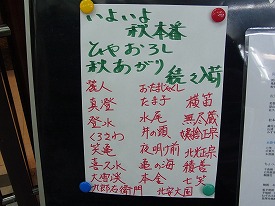 いよいよ
秋本番
ひやおろし
秋あがり 続々入荷
麗人 おたまじゃくし
真澄 たま子 横笛
登水 水尾 無尽蔵
くろさわ 井の頭 姨捨正宗
笑亀 夜明け前 北光正宗
喜久水 亀の海 積善
大雪渓 本金 七笑
九郎右衛門 北安大国